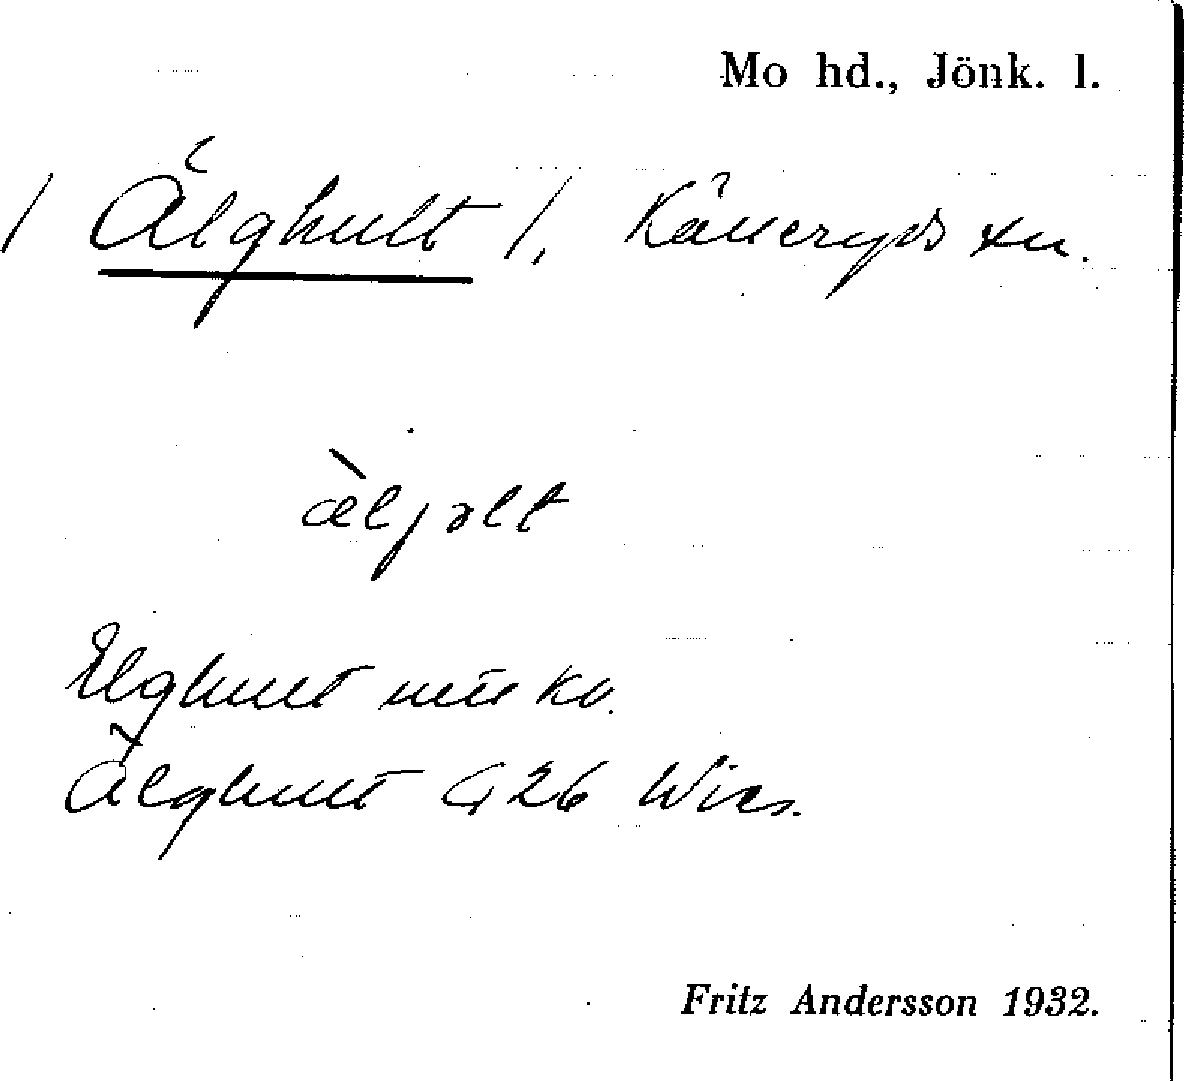 Mo hd., Jönk. l.
/ Älghult /, Källeryds sn.
æljɔlt
Elghult
Älghult G 26 Wies.
Fritz Andersson 1932.